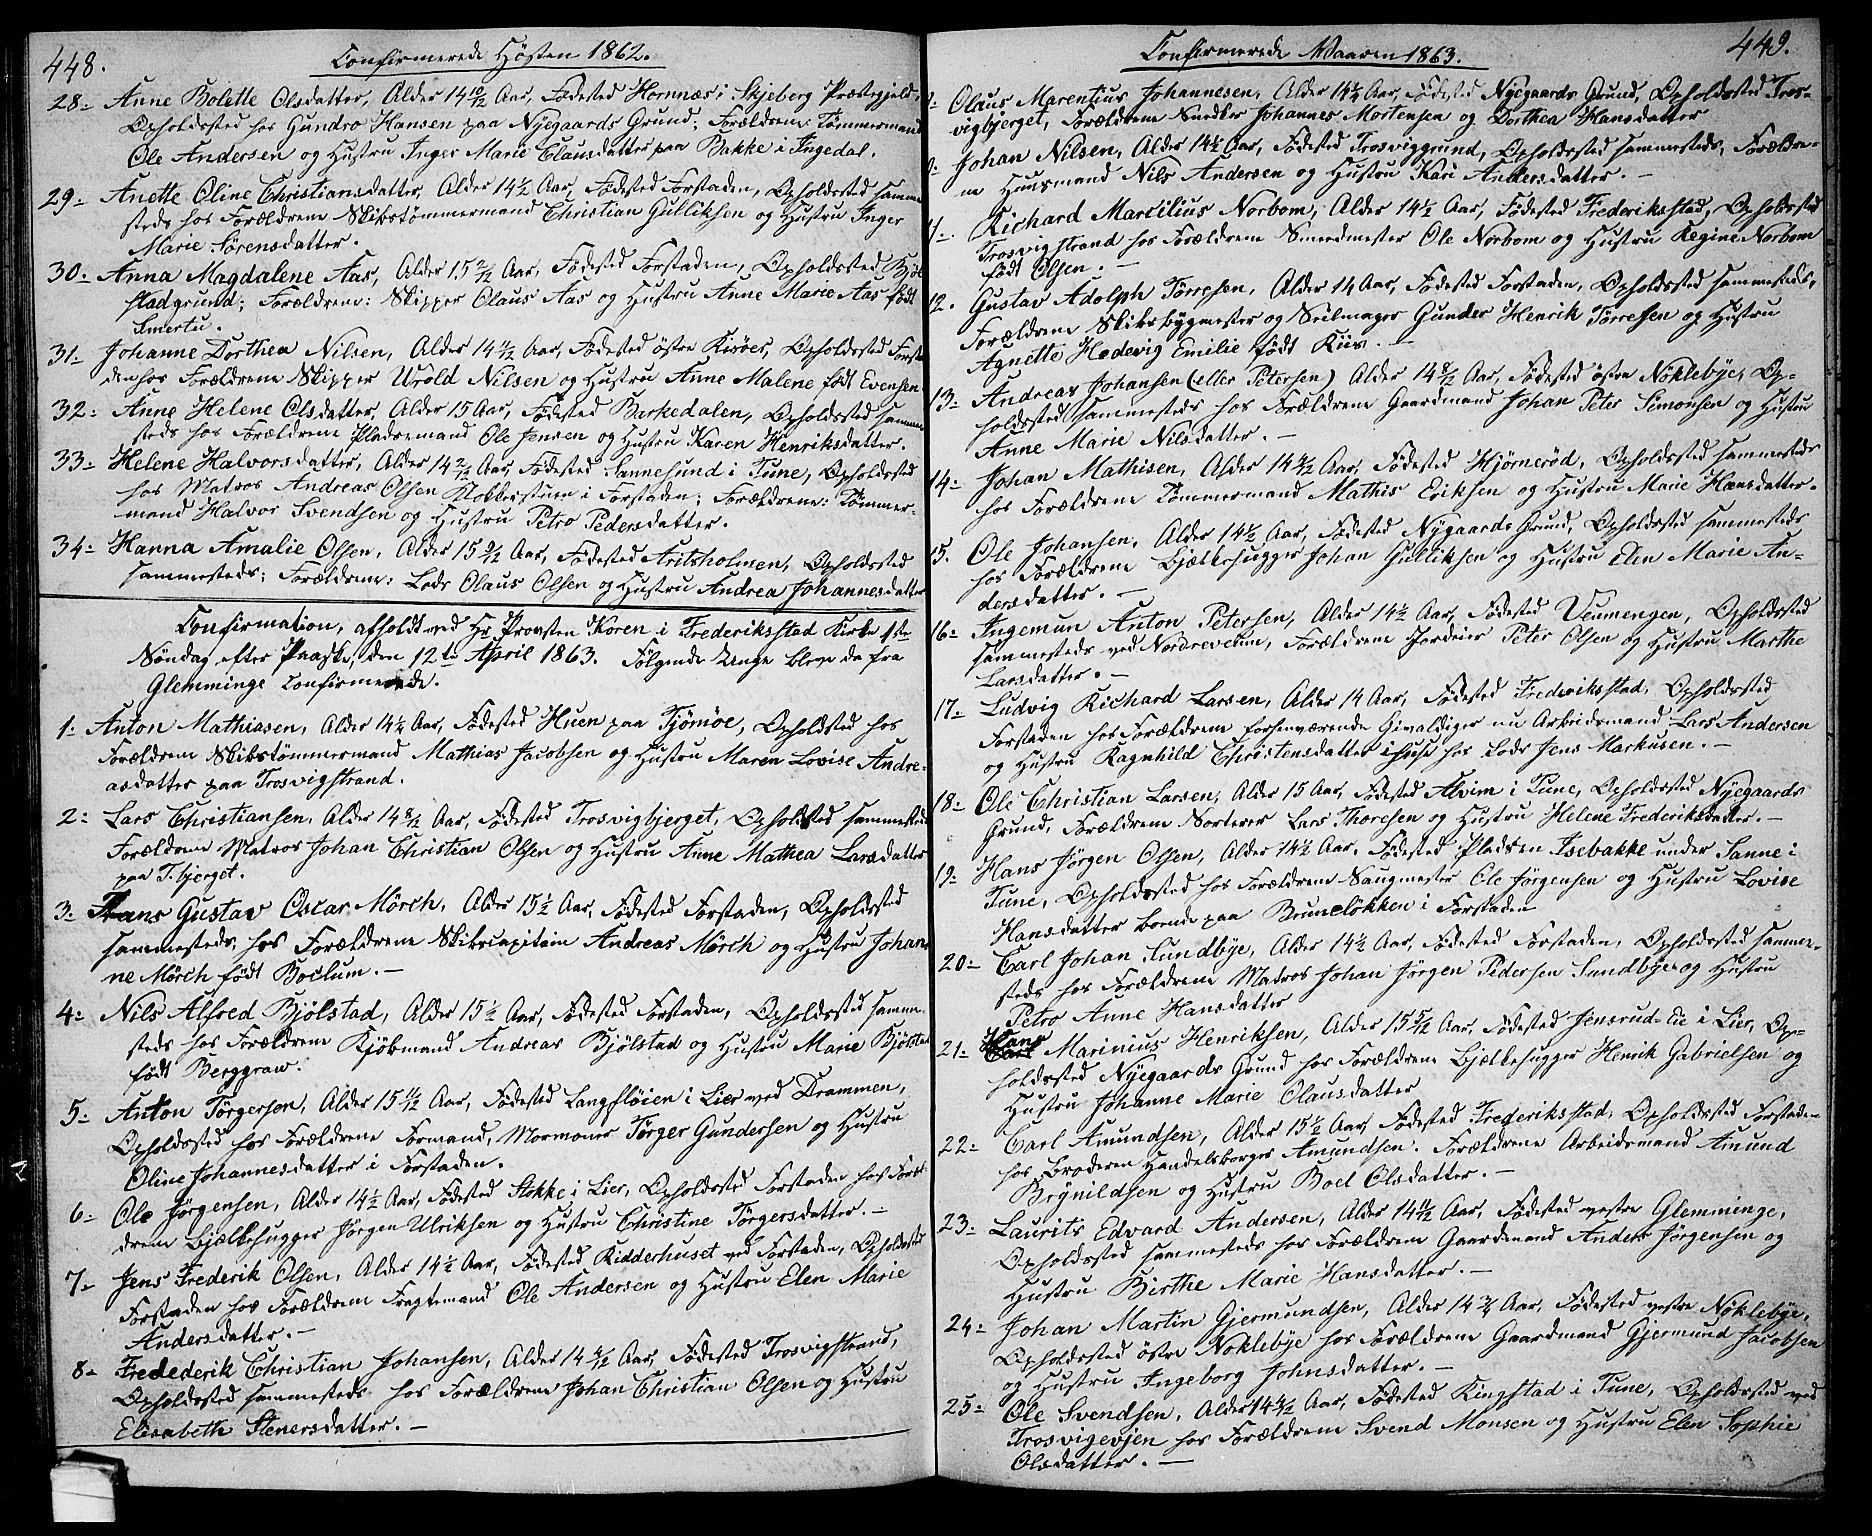 448.
Confirmerede Høsten 1862.
28- Anne Bolette Olsdatter, Alder 14 10/12 Aar, Fødested Hornnæs i Skjeberg Præstegjeld,
Opholdssted hos Gundro Hansen paa Nyegaards Grund; Forældrene: Tømmermand
Ole Andersen og Hustru Inger Marie Clausdatter paa Bakke i Ingedal.
29- Anette Oline Christiansdatter, Alder 14 1/2 Aar, Fødested Forstaden, Opholdssted samme
steds hos Forældrene Skibstømmermand Christian Gulliksen og Hustru Inger
Marie Sørensdatter.
30- Anna Magdalene Aas, Alder 15 2/12 Aar, Fødested Forstaden, Opholdssted Kjøl
stadgrund; Forældrene: Skipper Claus Aas og Hustru Anne Marie Aas født
Smertu.
31- Johanne Dorthea Nilsen, Alder 14 11/12 Aar, Fødested østre Kirøer, Opholdssted Forsta
den hos Forældrene Skipper Urold Nilsen og Hustru Anne Malene født Evensen
32- Anne Helene Olsdatter, Alder 15 Aar, Fødested Barkedalen, Opholdssted samme
steds hos Forældrene Pladsemand Ole Jensen og Hustru Karen Henriksdatter.
33- Helene Halvorsdatter, Alder 14 2/12 Aar, Fødested Sannesund i Tune, Opholdssted
hos Matros Andreas Olsen Klokkerstuen i Forstaden; Forældrene: Tømmer-
mand Halvor Svendsen og Hustru Petro Pedersdatter.
34- Hanna Amalie Olsen, Alder 15 9/12 Aar, Fødested Arisholmen, Opholdssted
sammesteds; Forældrene: Lods Olaus Olsen og Hustru Andrea Johannesdatter
Confirmation, afholdt ved Hr. Provsten Koren i Frederiksstad Kirke 1ste
Søndag efter Paaske, den 12te April 1863. Følgende Unge bleve da fra
Glemminge confirmerede.
1- Anton Mathiasen, Alder 14 1/2 Aar, Fødested Huen paa Tjømøe, Opholdssted hos
Forældrene Skibstømmermand Mathias Jacobsen og Hustru Maren Lovise Andre-
asdatter paa Trosvigstrand.
2- Lars Christiansen, Alder 14 8/12 Aar, Fødested Trosvigbjerget, Opholdssted sammesteds
Forældrene Matros Johan Christian Olsen og Hustru Anne Mathea Larsdatter
paa T.bjerget.
3- Hans Gustav Oscar Mörch, Alder 15 1/2 Aar, Fødested Forstaden, Opholdssted
sammesteds, hos Forældrene Skibscapitain Andreas Mörch og Hustru Johan
ne Mörch født Boclum.-
4- Nils Alfred Bjölstad, Alder 15 1/2 Aar, Fødested Forstaden, Opholdssted samme
steds hos Forældrene Kjöbmand Andreas Bjölstad og Hustru Marie Bjölstad
født Berggraw.
5- Anton Törgersen, Alder 15 11/12 Aar, Fødested Langfløien i Lier ved Drammen,
Opholdssted hos Forældrene Formand, Mormoner Törger Gundersen og Hustru
Oline Johannesdatter i Forstaden.
6- Ole Jørgensen, Alder 14 1/2 Aar, Fødested Stokke i Lier, Opholdssted Forstaden hos Foræl-
drene Bjælkehugger Jørgen Ulriksen og Hustru Christine Törgersdatter.-
7- Jens Frederik Olsen, Alder 14 1/2 Aar, Fødested Ridderhuset ved Forstaden, Opholdssted
Forstaden hos Forældrene Fragtemand Ole Andersen og Hustru Elen Marie
Andersdatter.-
8- Fredederik Christian Johansen, Alder 14 4/12 Aar, Fødested Trosvigstrand,
Opholdssted sammesteds hos Forældrene Johan Christian Olsen og Hustru
Elisabeth Stenersdatter.-
449.
Confirmerede Vaaren 1863.
Olaus Marentius Johannesen, Alder 14 1/2 Aar, Fødested Nyegaards Grund, Opholdssted Tros-
vigbjerget, Forældrene Snedker Johannes Mortensen og Dorthea Hansdatter
Johan Nilsen, Alder 14 1/2 Aar, Fødested Trosviggrund, Opholdssted sammesteds, Forældre-
ne Huusmand Nils Andersen og Hustru Kari Andersdatter.-
Richard Marcilius Norbom, Alder 14 1/2 Aar, Fødested Frederiksstad, Opholdssted
Trosvigstrand hos Forældrene Smedmester Ole Norbom og Hustru Regine Norbom
født Olsen.-
12. Gustav Adolph Törresen, Alder 14 Aar, Fødested Forstaden, Opholdssted sammesteds,
Forældrene Skibsbygmester og Seilmager Gunder Henrik Törresen og Hustru
Agnette Hedevig Emilie født Riis.-
13- Andreas Johansen (eller Petersen) Alder 14 8/12 Aar, Fødested østre Nöklebye, Op-
holdssted sammesteds hos Forældrene Gaardmand Johan Peter Simonsen og Hustru
Anne Marie Nilsdatter.-
14- Johan Mathisen, Alder 14 9/12 Aar, Fødested Hjørnerød, Opholdssted sammesteds
hos Forældrene Tømmermand Mathis Eriksen og Hustru Marie Hansdatter.
15. Ole Johansen, Alder 14 1/2 Aar, Fødested Nygaards Grund, Opholdssted sammesteds
hos Forældrene Bjelkehugger Johan Gulliksen og Hustru Elen Marie An-
dersdatter.-
16- Ingemun Anton Petersen, Alder 14 1/2 Aar, Fødested Veumengen, Opholdssted
sammesteds ved Nordreveum, Forældrene Jordeier Peter Olsen og Hustru Marthe
Larsdatter.-
17- Ludvig Richard Larsen, Alder 14 Aar, Fødested Frederiksstad, Opholdssted
Forstaden hos Forældrene forhenværende Givaldiger nu Arbeidsmand Lars Andersen
og Hustru Ragnhild Christensdatter i huse hos Lods Jens Markusen.-
18- Ole Christian Larsen, Alder 15 Aar, Fødested Alvim i Tune, Opholdssted Nyegaards
Grund, Forældrene Sorterer Lars Thoresen og Hustru Helene Frederiksdatter.-
19- Hans Jörgen Olsen, Alder 14 1/2 Aar, Fødested Pladsen Isebakke under Sanne i
Tune, Opholdssted hos Forældrene Saugmester Ole Jørgensen og Hustru Lovise
Hansdatter boende paa Bruneløkken i Forstaden
20- Carl Johan Sundbye, Alder 14 1/2 Aar, Fødested Forstaden, Opholdssted samme-
steds hos Forældrene Matros Johan Jörgen Pedersen Sundbye og Hustru
Petro Anne Hansdatter
21- Hans Marinius Henriksen, Alder 15 5/12 Aar, Fødested Jensrud-Lie i Lier, Op-
holdssted Nyegaards Grund hos Forældrene Bjælkehugger Henrik Gabrielsen og
Hustru Johanne Marie Olausdatter
22- Carl Amundsen, Alder 15 1/2 Aar, Fødested Frederiksstad, Opholdssted Forstaden
hos Broderen Handelsborger Amundsen. Forældrene Arbeidsmand Amund
Brynildsen og Hustru Boel Olsdatter.-
23- Laurits Edvard Andersen, Alder 14 11/12 Aar, Fødested vestre Glemminge,
Opholdssted sammesteds hos Forældrene Gaardmand Anders Jørgensen og
Hustru Birthe Marie Hansdatter.-
24- Johan Martin Gjermundsen, Alder 14 3/4 Aar, Fødested vestre Nöklebye,
Opholdssted østre Noklebye hos Forældrene Gaardmand Gjermund Jacobsen
og Hustru Ingeborg Johnsdatter.-
25- Ole Svendsen, Alder 14 4/12 Aar, Fødested Kingstad i Tune, Opholdssted ved
Trosvigevjen hos Forældrene Svend Monsen og Hustru Elen Sophie
Olsdatter.-